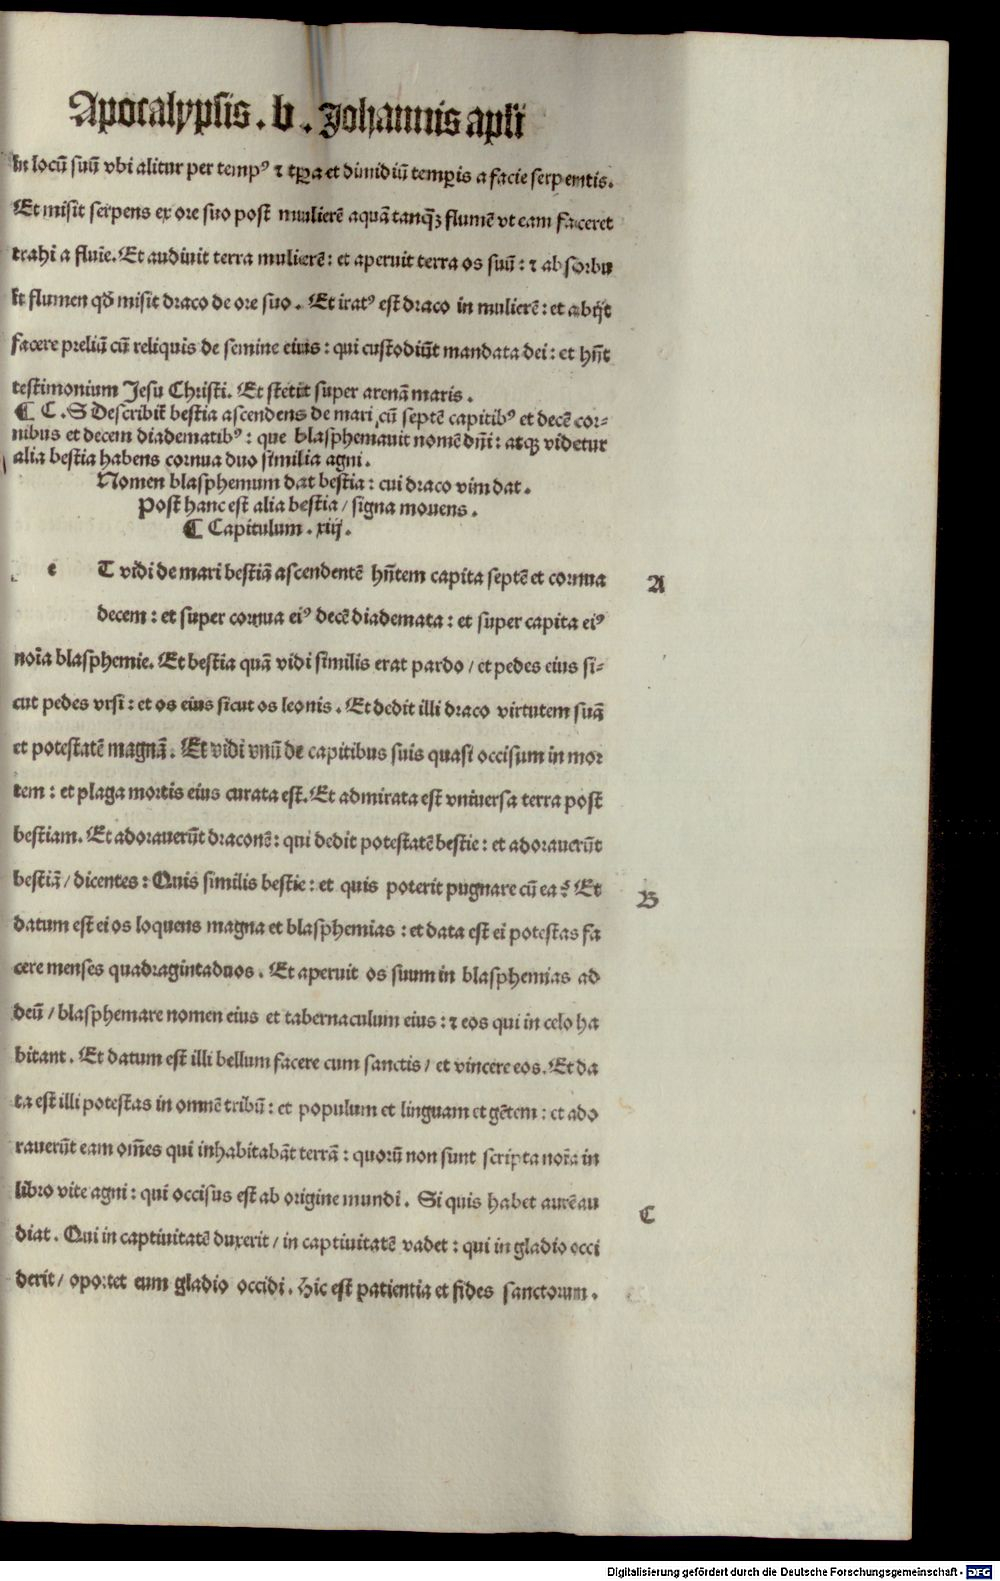 Apocalypsis . b . Johannis apľi
in locū suū vbi alitur per tempꝰ ⁊ tꝑa et dimidiū temꝑis a facie serpentis.
Et misit serpens ex ore suo post mulierē aquā tanqꝫ flumē vt eam faceret
trahi a fluīe. Et audiuit terra mulierē : et aperuit terra os suū : ⁊ absorbu
it flumen qď misit draco de ore suo . Et iratꝰ est draco in mulierē : et abijt
facere preliū cū reliquis de semine eius : qui custodiūt mandata dei : et hn̄t
testimonium Jesu Christi . Et stetit super arenā maris .
¶ C . S Describit̄ bestia ascendens de mari cū septē capitibꝰ et decē cor⸗
nibus et decem diadematibꝰ : que blasphemauit nomē dn̄i : atqꝫ videtur
alia bestia habens cornua duo similia agni .
Nomen blasphemum dat bestia : cui draco vim dat .
Post hanc est alia bestia / signa mouens .
¶ Capitulum . xiij .
e T vidi de mari bestiā ascendentē hn̄tem capita septē et cornua
A
decem : et super cornua eiꝰ decē diademata : et super capita eiꝰ
noīa blasphemie. Et bestia quā vidi similis erat pardo / et pedes eius si⸗
cut pedes vrsi : et os eius sicut os leonis . Et dedit illi draco virtutem suā
et potestatē magnā . Et vidi vnū de capitibus suis quasi occisum in mor
tem : et plaga mortis eius curata est. Et admirata est vniuersa terra post
bestiam. Et adorauerūt draconē : qui dedit potestatē bestie : et adorauerūt
bestiā / dicentes : Quis similis bestie : et quis poterit pugnare cū ea ? Et
B
datum est ei os loquens magna et blasphemias : et data est ei potestas fa
cere menses quadragintaduos . Et aperuit os suum in blasphemias ad
deū / blasphemare nomen eius et tabernaculum eius : ⁊ eos qui in celo ha
bitant . Et datum est illi bellum facere cum sanctis / et vincere eos. Et da
ta est illi potestas in omnē tribū : et populum et linguam et gētem : et ado
rauerūt eam om̄es qui inhabitabāt terrā : quorū non sunt scripta noīa in
libro vite agni : qui occisus est ab origine mundi . Si quis habet aurē au
C
diat . Qui in captiuitatē duxerit / in captiuitatē vadet : qui in gladio occi
derit / oportet eum gladio occidi . Hic est patientia et fides sanctorum .
Digitalisierung gefördert durch die Deutsche Forschungsgemeinschaft - DFG